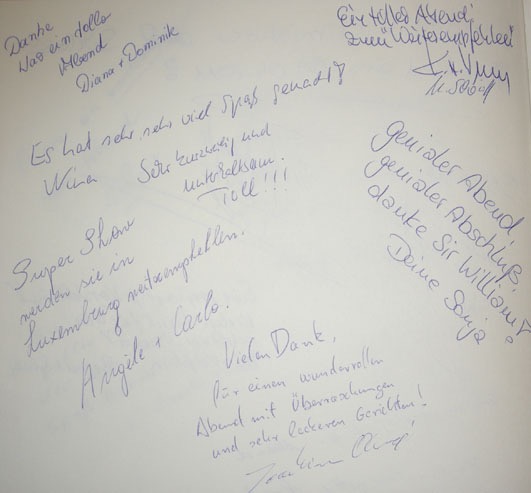 Danke
Was ein toller
Abend
Diana + Dominik
Ein tolles Abend
zum Weiterempfehlen
Es hat sehr, sehr viel Spaß gemacht
Nina
Sehr kurzweilig und
unterhaltsam.
Toll!!!
genialer Abend,
genialer Abschluß,
danke Sir William
Deine Sonja
Super Show
werden sie in
Luxemburg weiterempfehlen.
Angèle + Carlo.
Vielen Dank,
für einen wundervollen
Abend mit Überraschungen
und sehr leckeren Gerichten!
Joachim